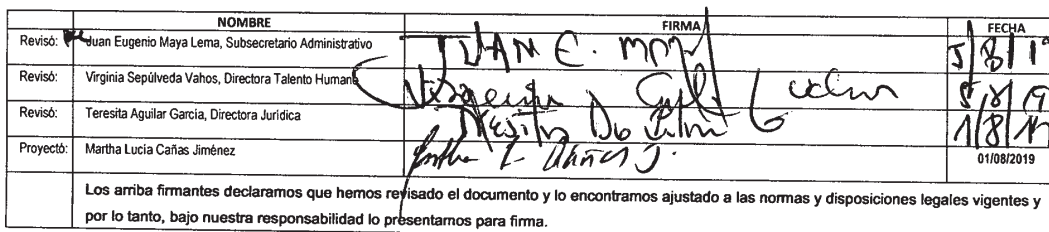 NOMBRE FIRMA FECHA
Revisó: Juan Eugenio Maya Lema, Subsecretario Administrativo JUAN E. 5/8/19
Revisó: Virginia Sepúlveda Vahos, Directora Talento Humano Virginia 5/8/19
Revisó: Teresita Aguilar García, Directora Jurídica 1/8/19
Proyectó: Martha Lucia Cañas Jiménez Martha L Cañas J. 01/08/2019
Los arriba firmantes declaramos que hemos revisado el documento y lo encontramos ajustado a las normas y disposiciones legales vigentes y
por lo tanto, bajo nuestra responsabilidad lo presentamos para firma.